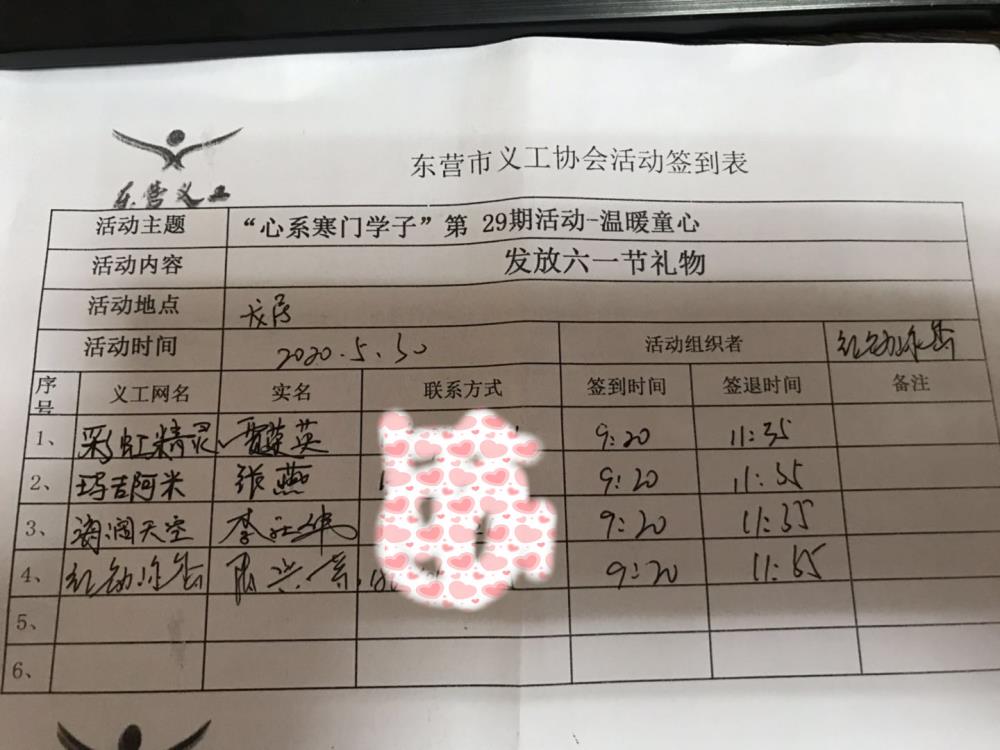 东营义工
东营市义工协会活动签到表
活动主题 “心系寒门学子”第 29期活动-温暖童心
活动内容 发放六一节礼物
活动地点 龙居
活动时间 2020.5.30 活动组织者
序号 义工网名 实名 联系方式 签到时间 签退时间 备注
1、 彩虹精灵 英 9:20 11:35
2、 玛吉阿米 张燕 9:20 11:35
3、 海阔天空 李 9:20 11:35
4、 兴 9:20 11:35
5、
6、